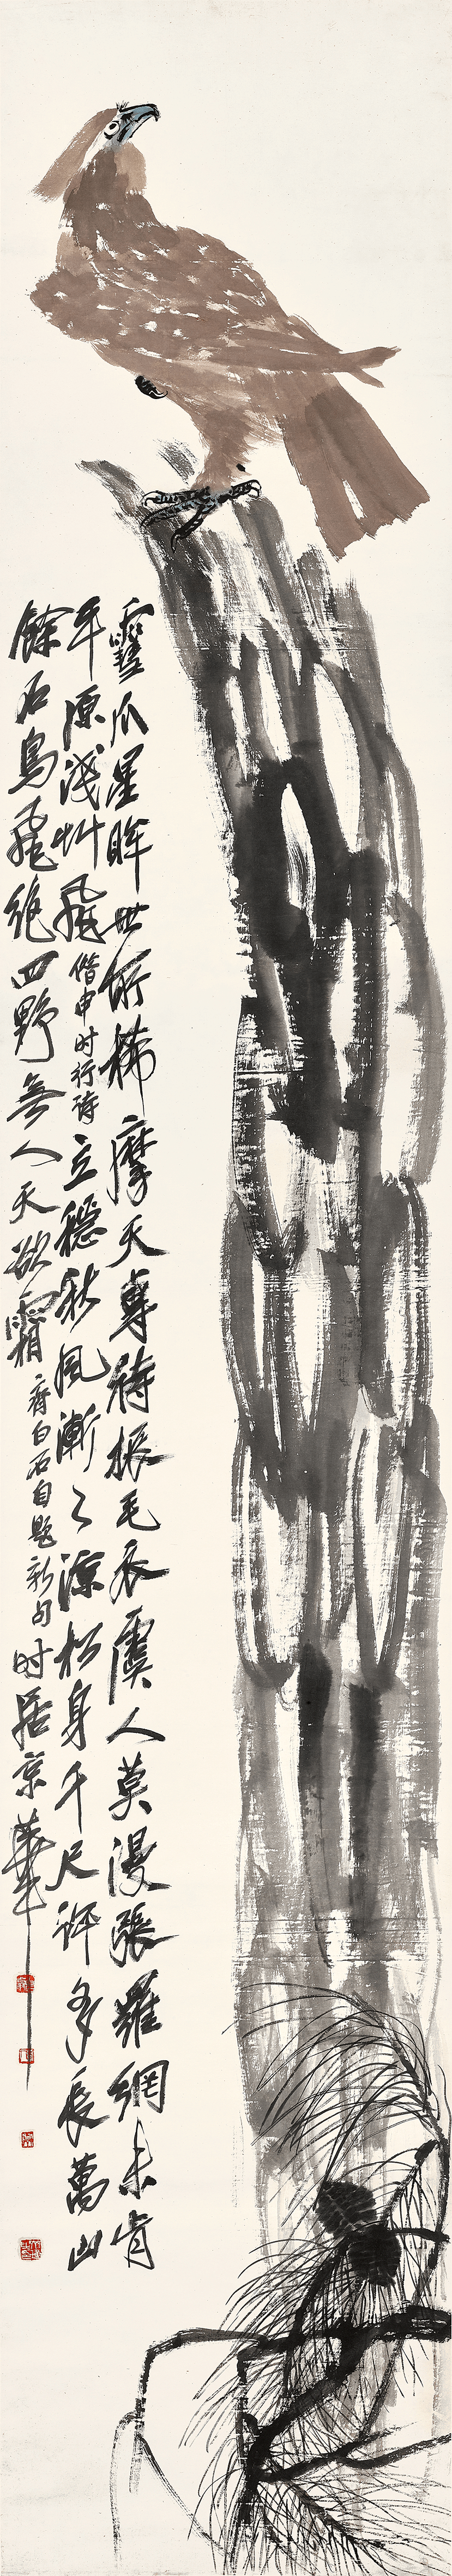 雪爪星眸世所稀摩天專待振毛衣虞人莫漫張羅網未肯
平原淺艸飛借申時行詩立穩秋風漸〻涼松身千尺許多長萬山
餘石鳥飛絕四野無人天欲霜齊白石自題新句時居京華